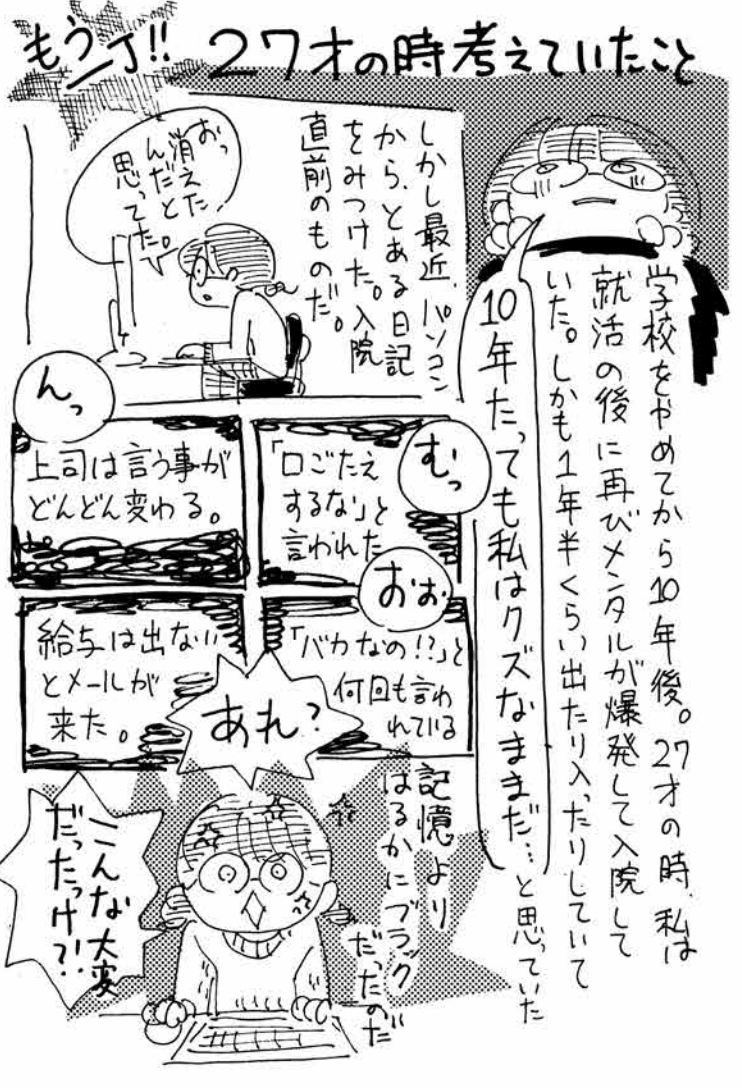 もう一丁!! 27才の時考えていたこと
学校をやめてから10年後。27才の時、私は
就活の後に再びメンタルが爆発して入院して
いた。しかも1年半くらい出たり入ったりしていて
10年たっても私はクズなままだ…と思っていた
しかし最近、パソコン
から、とある日記
をみつけた。入院
直前のものだ。
おっ
消えた
んだと
思ってた。
むっ
「口ごたえ
するな」と
言われた
んっ
上司は言う事が
どんどん変わる。
おぉ
「バカなの!?」と
何回も言わ
れている
給与は出ない
とメールが
来た。
あれ?
記憶より
はるかにブラック
だったのだ
こんな大変
だったっけ?!